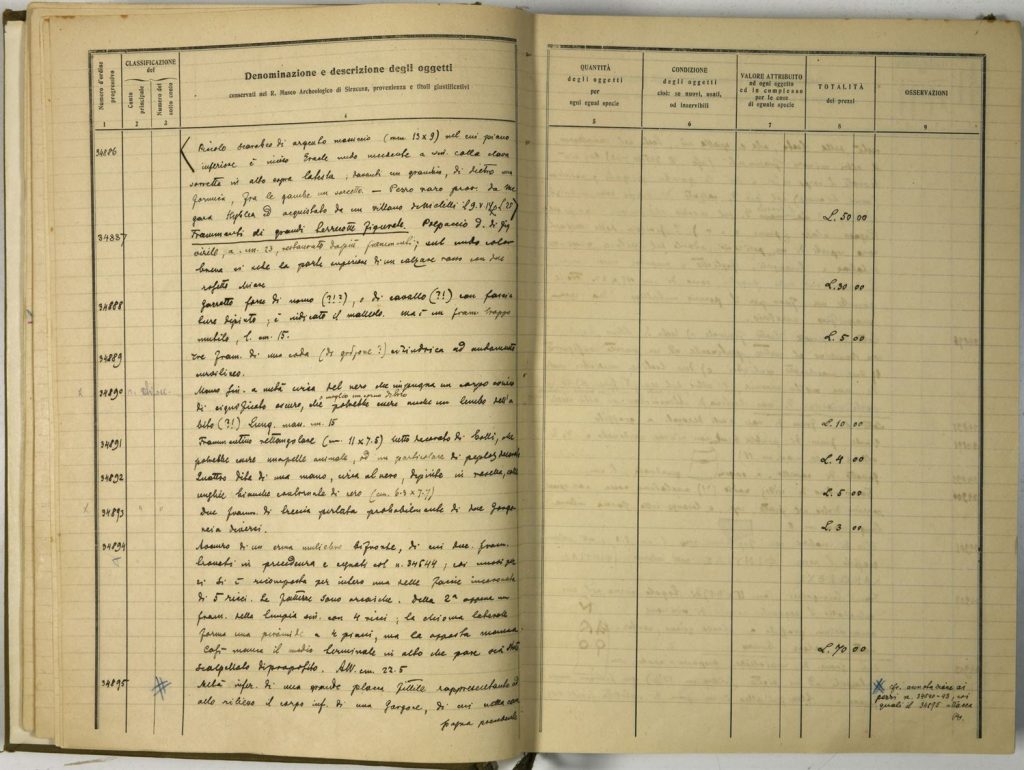 Numero d'ordine progressivo
CLASSIFICAZIONE del
Conto principale
Numero del sotto conto
Denominazione e descrizione degli oggetti
conservati nel R. Museo Archeologico di Siracusa, provenienza e titoli giustificativi
QUANTITÀ degli oggetti per ogni egual specie
CONDIZIONE degli oggetti cioè: se nuovi, usati, od inservibili
VALORE ATTRIBUITO ad ogni oggetto ed in complesso per le cose di eguale specie
TOTALITÀ dei prezzi
OSSERVAZIONI
1 2 3 4 5 6 7 8 9
34886 Piccolo scarabeo di argento massiccio (mm. 13 x 9) nel cui piano
inferiore è inciso Eracle nudo a colla clava
in alto sopra la testa; davanti un granchio, di dietro una
formica, fra le gambe un sorcetto. — Pezzo raro prov. da Me
gara Hyblea ed acquistato da un villano di Melilli
L. 50 00
34887 Frammenti di grandi terrecotte figurate. D. di fig
virile, a cm. 23, restaurato da frammenti; sul nudo color
si vede la parte superiore di un calzare rosso con due
L. 30 00
34888 Garretto forse di uomo (?!?), o di cavallo (?!) con
dipinto; è indicato il malleolo. Ma è un fram. troppo
mutilo, l. cm. 15.
L. 5 00
34889 Tre fram. di una coda (di grifone?) cilindrica ad andamento
34890 Mano sin. a metà circa del vero che impugna un corpo conico
di significato oscuro, che potrebbe essere anche un lembo dell'a
bito (?!) Lung. mass. cm. 15
L. 10 00
34891 Frammentino rettangolare (cm. 11 x 7.5) tutto decorato di bolli, che
potrebbe essere una pelle animale, od un particolare di peplos decorato
L. 4 00
34892 Quattro dita di una mano, circa al vero, dipinte in rosso, colle
unghie bianche
L. 5 00
34893 Due framm. di treccia perlata probabilmente di due Gorgo
neia diversi.
L. 3 00
34894 di un erma bifronte, di cui due fram.
trovati in precedenza e segnati col n. 34544; coi nuovi
si è ricomposta per intero una delle facie incorniciata
di 5 ricci. Le fattezze sono arcaiche. Della 2a appena un
fram. della tempia sin. con 4 ricci; la chioma laterale
forma una piramide a 4 piani, ma la opposta manca.
Così manca il medio terminale in alto che pare sia stato
scalpellato di proposito. Alt. cm. 22.5
L. 70 00
34895 Metà infer. di una grande placca fittile rappresentante ad
alto rilievo il corpo inf. di una Gorgone, di cui nella
pagina precedente
cfr. annotazione ai
pezzi n. 34540-43, coi
quali il 34895 attacca